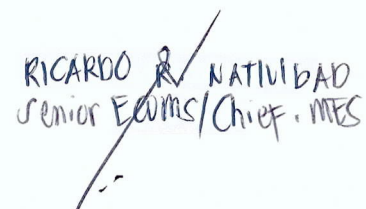 RICARDO R. NATIVIDAD
Senior EcoMS/Chief. MES